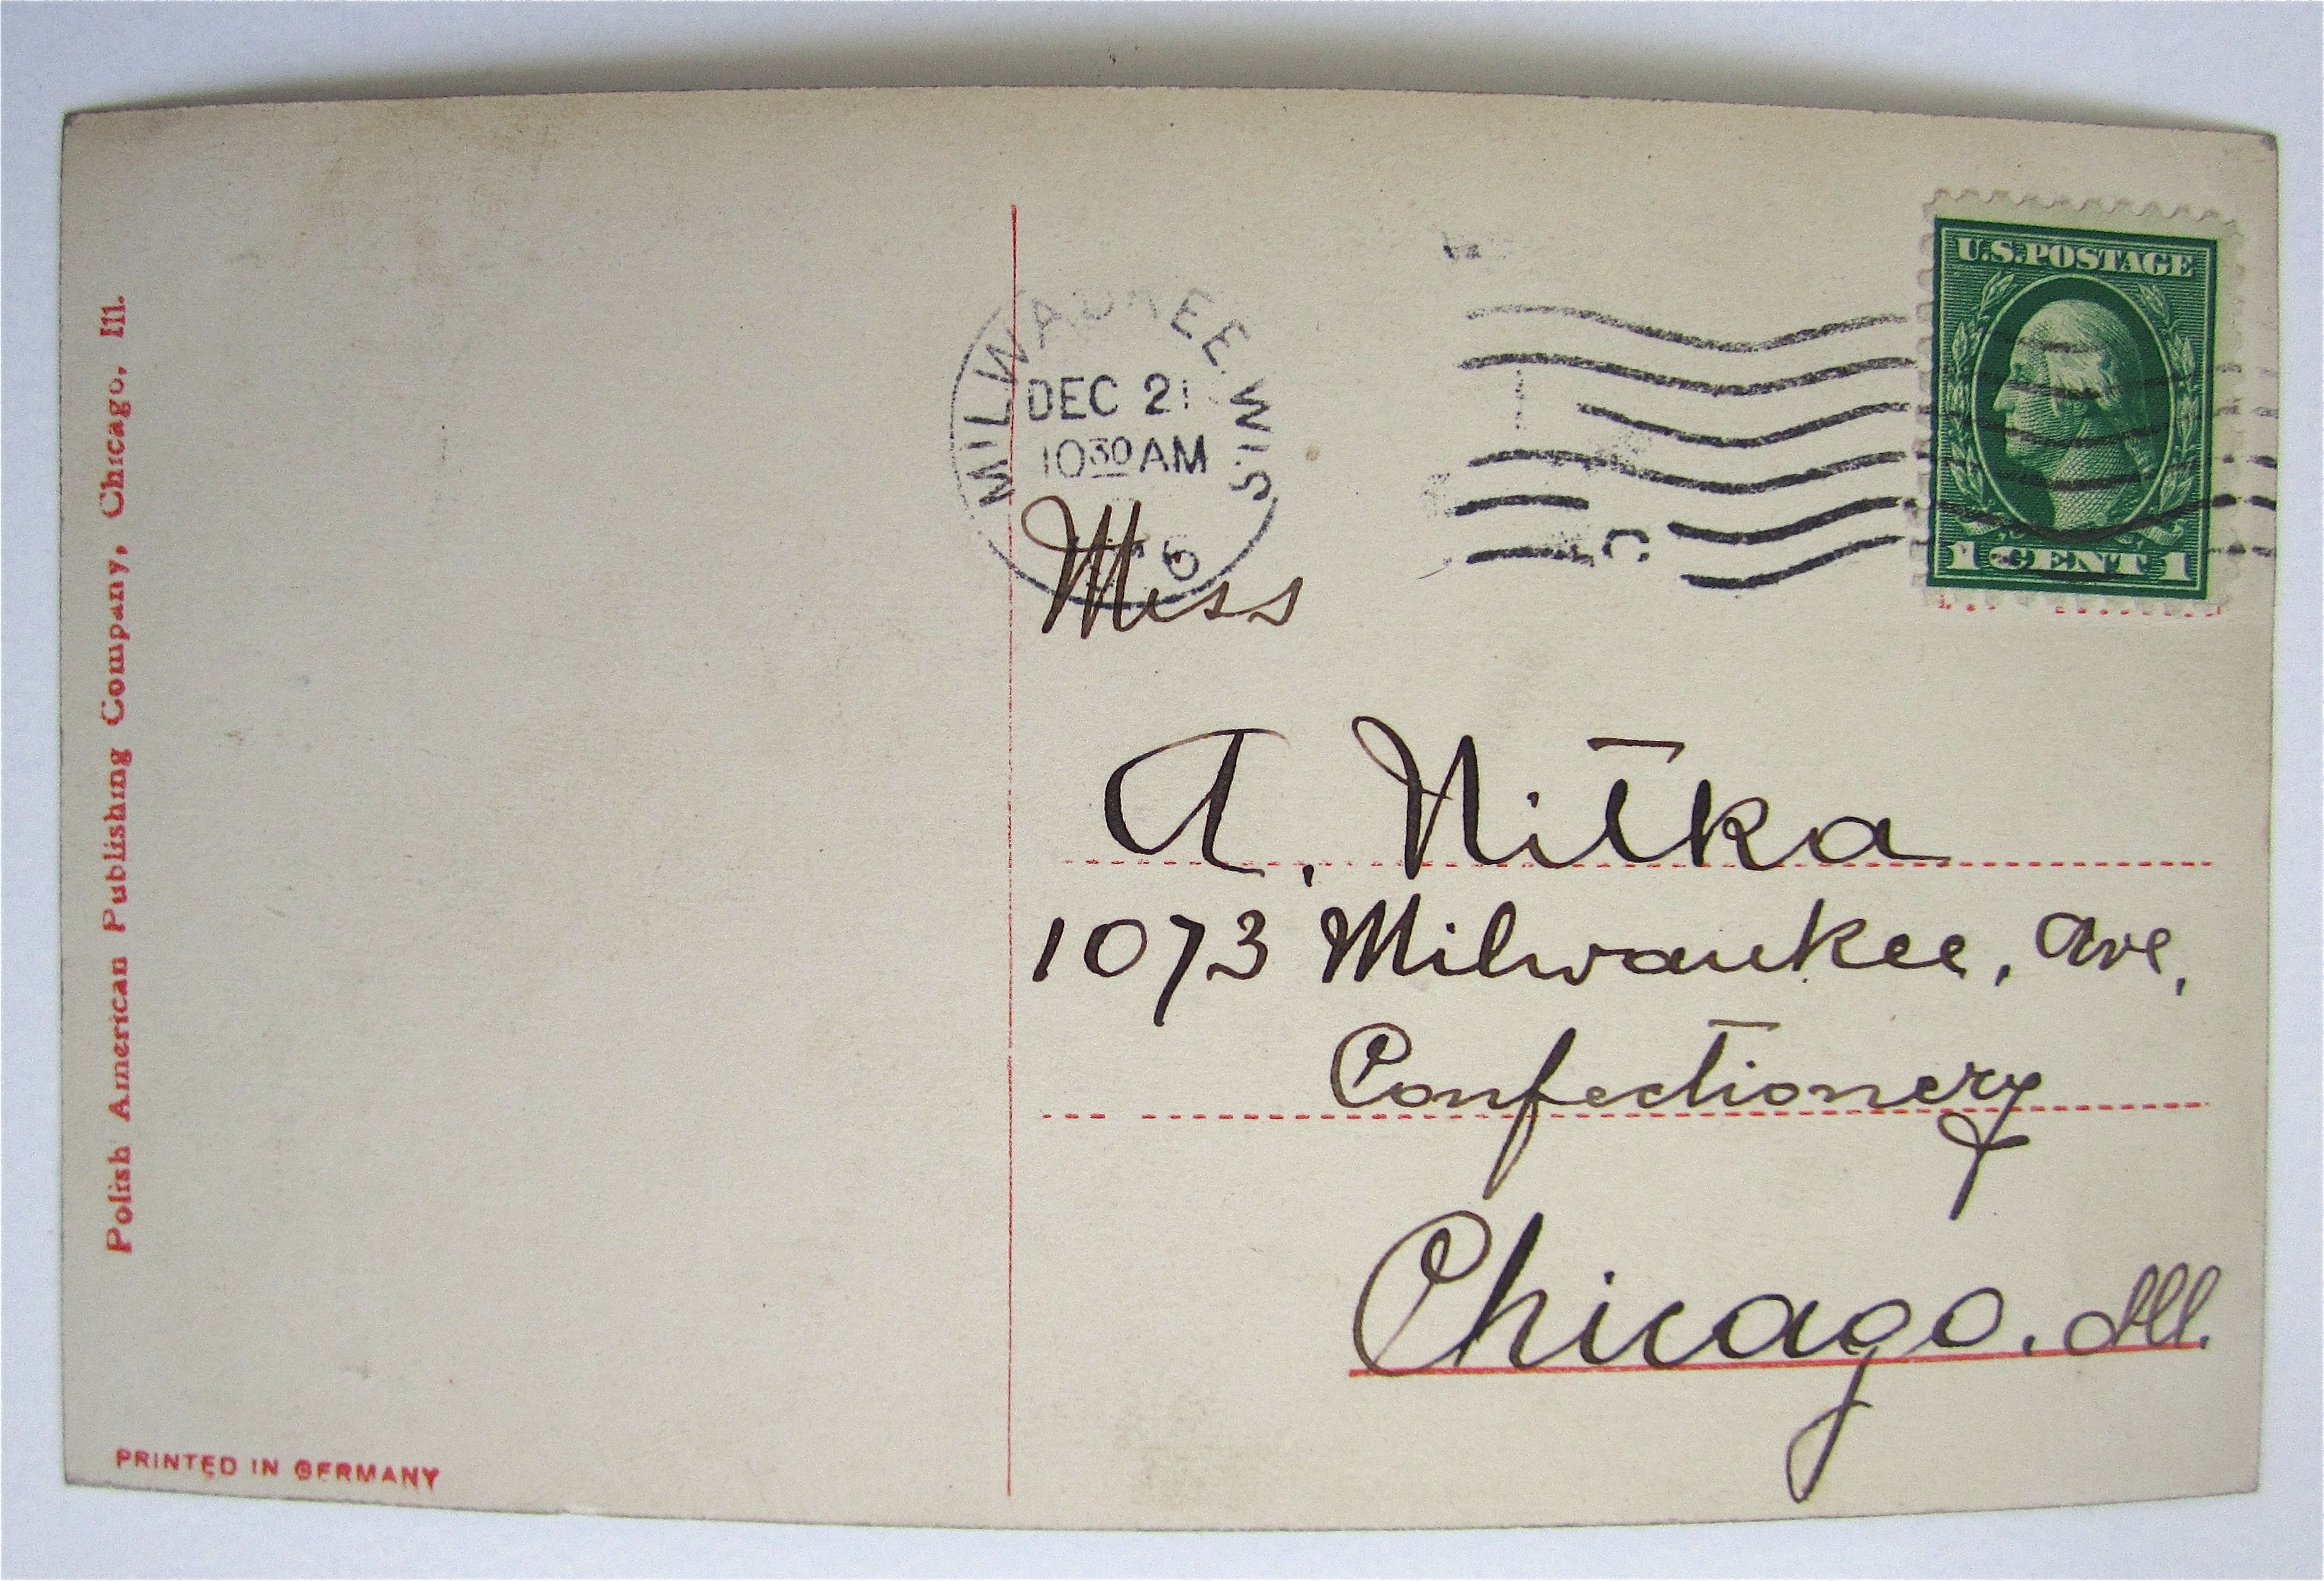 Polish American Publishing Company, Chicago, Ill.
PRINTED IN GERMANY
MILWAUKEE WIS
DEC 21
10 30 AM
U.S. POSTAGE
1 CENT 1
Miss
A. Nitka
1073 Milwaukee, Ave,
Confectionery
Chicago. Ill.